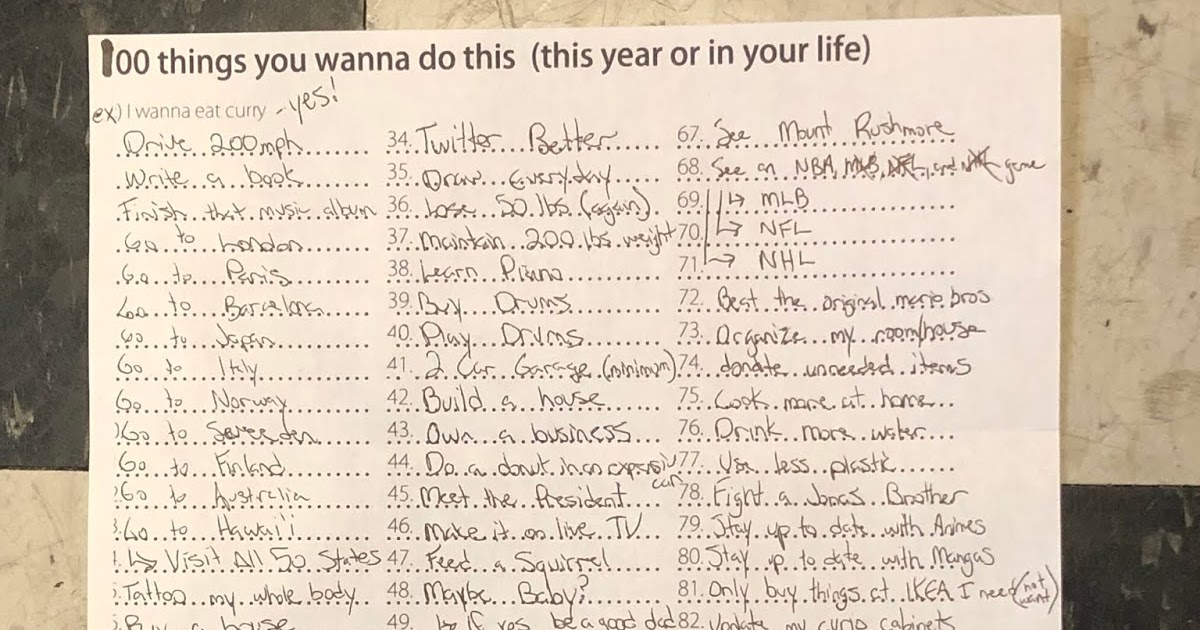 100 things you wanna do this (this year or in your life)
ex) I wanna eat curry - yes!
Drive 200mph
Write a book
Finish that music album
Go to London
Go to Paris
Go to Barcelona
Go to Japan
Go to Italy
Go to Norway
Go to Sweden
Go to Finland
Go to Australia
Go to Hawai'i
↳ Visit All 50 States
Tattoo my whole body
Buy a house
34. Twitter Better
35. Draw Everyday
36. Lose 50 lbs (again)
37. Maintain 200 lbs weight
38. Learn Piano
39. Buy Drums
40. Play Drums
41. 2 Car Garage (minimum)
42. Build a house
43. Own a business
44. Do a donut in an expensive car
45. Meet the President
46. Make it on live TV
47. Feed a Squirrel
48. Maybe Baby?
49. ↳ If yes be a good dad
67. See Mount Rushmore
68. See an NBA, MLB, NFL, and NHL game
69. ↳ MLB
70. ↳ NFL
71. ↳ NHL
72. Beat the original mario bros
73. Organize my room/house
74. donate unneeded items
75. Cook more at home
76. Drink more water
77. Use less plastic
78. Fight a Jonas Brother
79. Stay up to date with Animes
80. Stay up to date with Mangas
81. Only buy things at IKEA I need (not want)
82. Update my curio cabinets